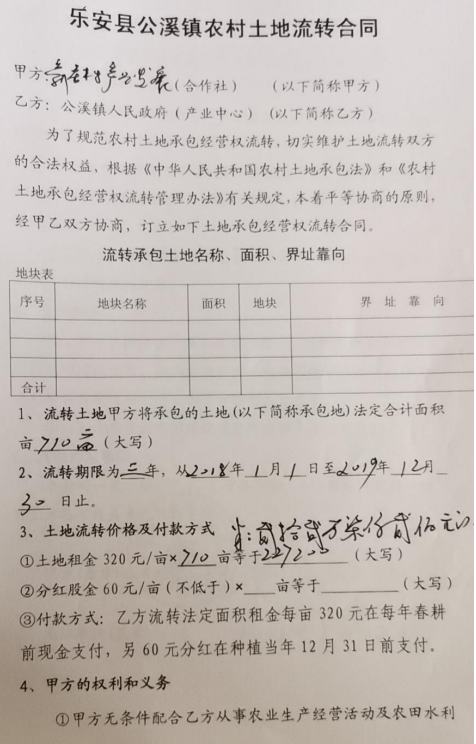 乐安县公溪镇农村土地流转合同
甲方 (合作社) (以下简称甲方)
乙方：公溪镇人民政府（产业中心）(以下简称乙方)
为了规范农村土地承包经营权流转，切实维护土地流转双方
的合法权益，根据《中华人民共和国农村土地承包法》和《农村
土地承包经营权流转管理办法》有关规定，本着平等协商的原则，
经甲乙双方协商，订立如下土地承包经营权流转合同。
流转承包土地名称、面积、界址靠向
地块表
序号 地块名称 面积 地块 界 址 靠 向
合计
1、流转土地甲方将承包的土地(以下简称承包地)法定合计面积
亩710亩（大写）
2、流转期限为 年，从2018年1月1日至2019年12月
30日止。
3、土地流转价格及付款方式 贰拾贰万柒仟贰佰元
①土地租金 320 元/亩×710亩等于227200（大写）
②分红股金 60 元/亩（不低于）×____亩等于________（大写）
③付款方式：乙方流转法定面积租金每亩 320 元在每年春耕
前现金支付，另 60 元分红在种植当年 12 月 31 日前支付。
4、甲方的权利和义务
①甲方无条件配合乙方从事农业生产经营活动及农田水利